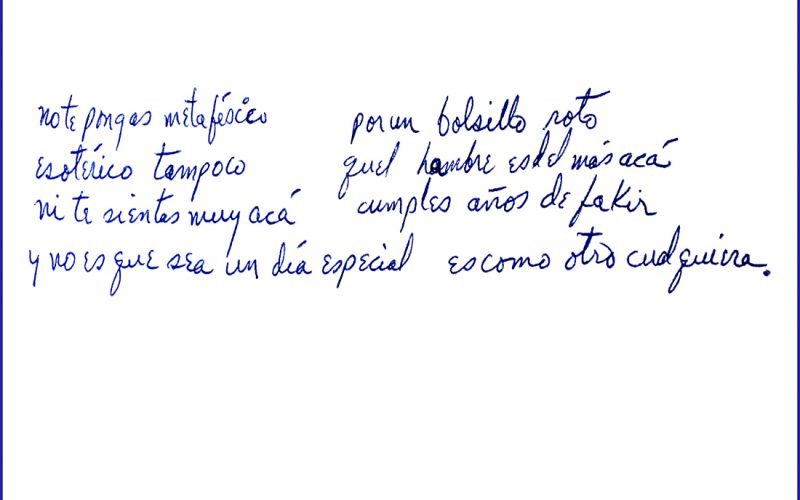 no te pongas metafísico por un bolsillo roto
esotérico tampoco quel hambre es del más acá
ni te sientas muy acá cumples años de fakir
y no es que sea un día especial es como otro cualquiera.